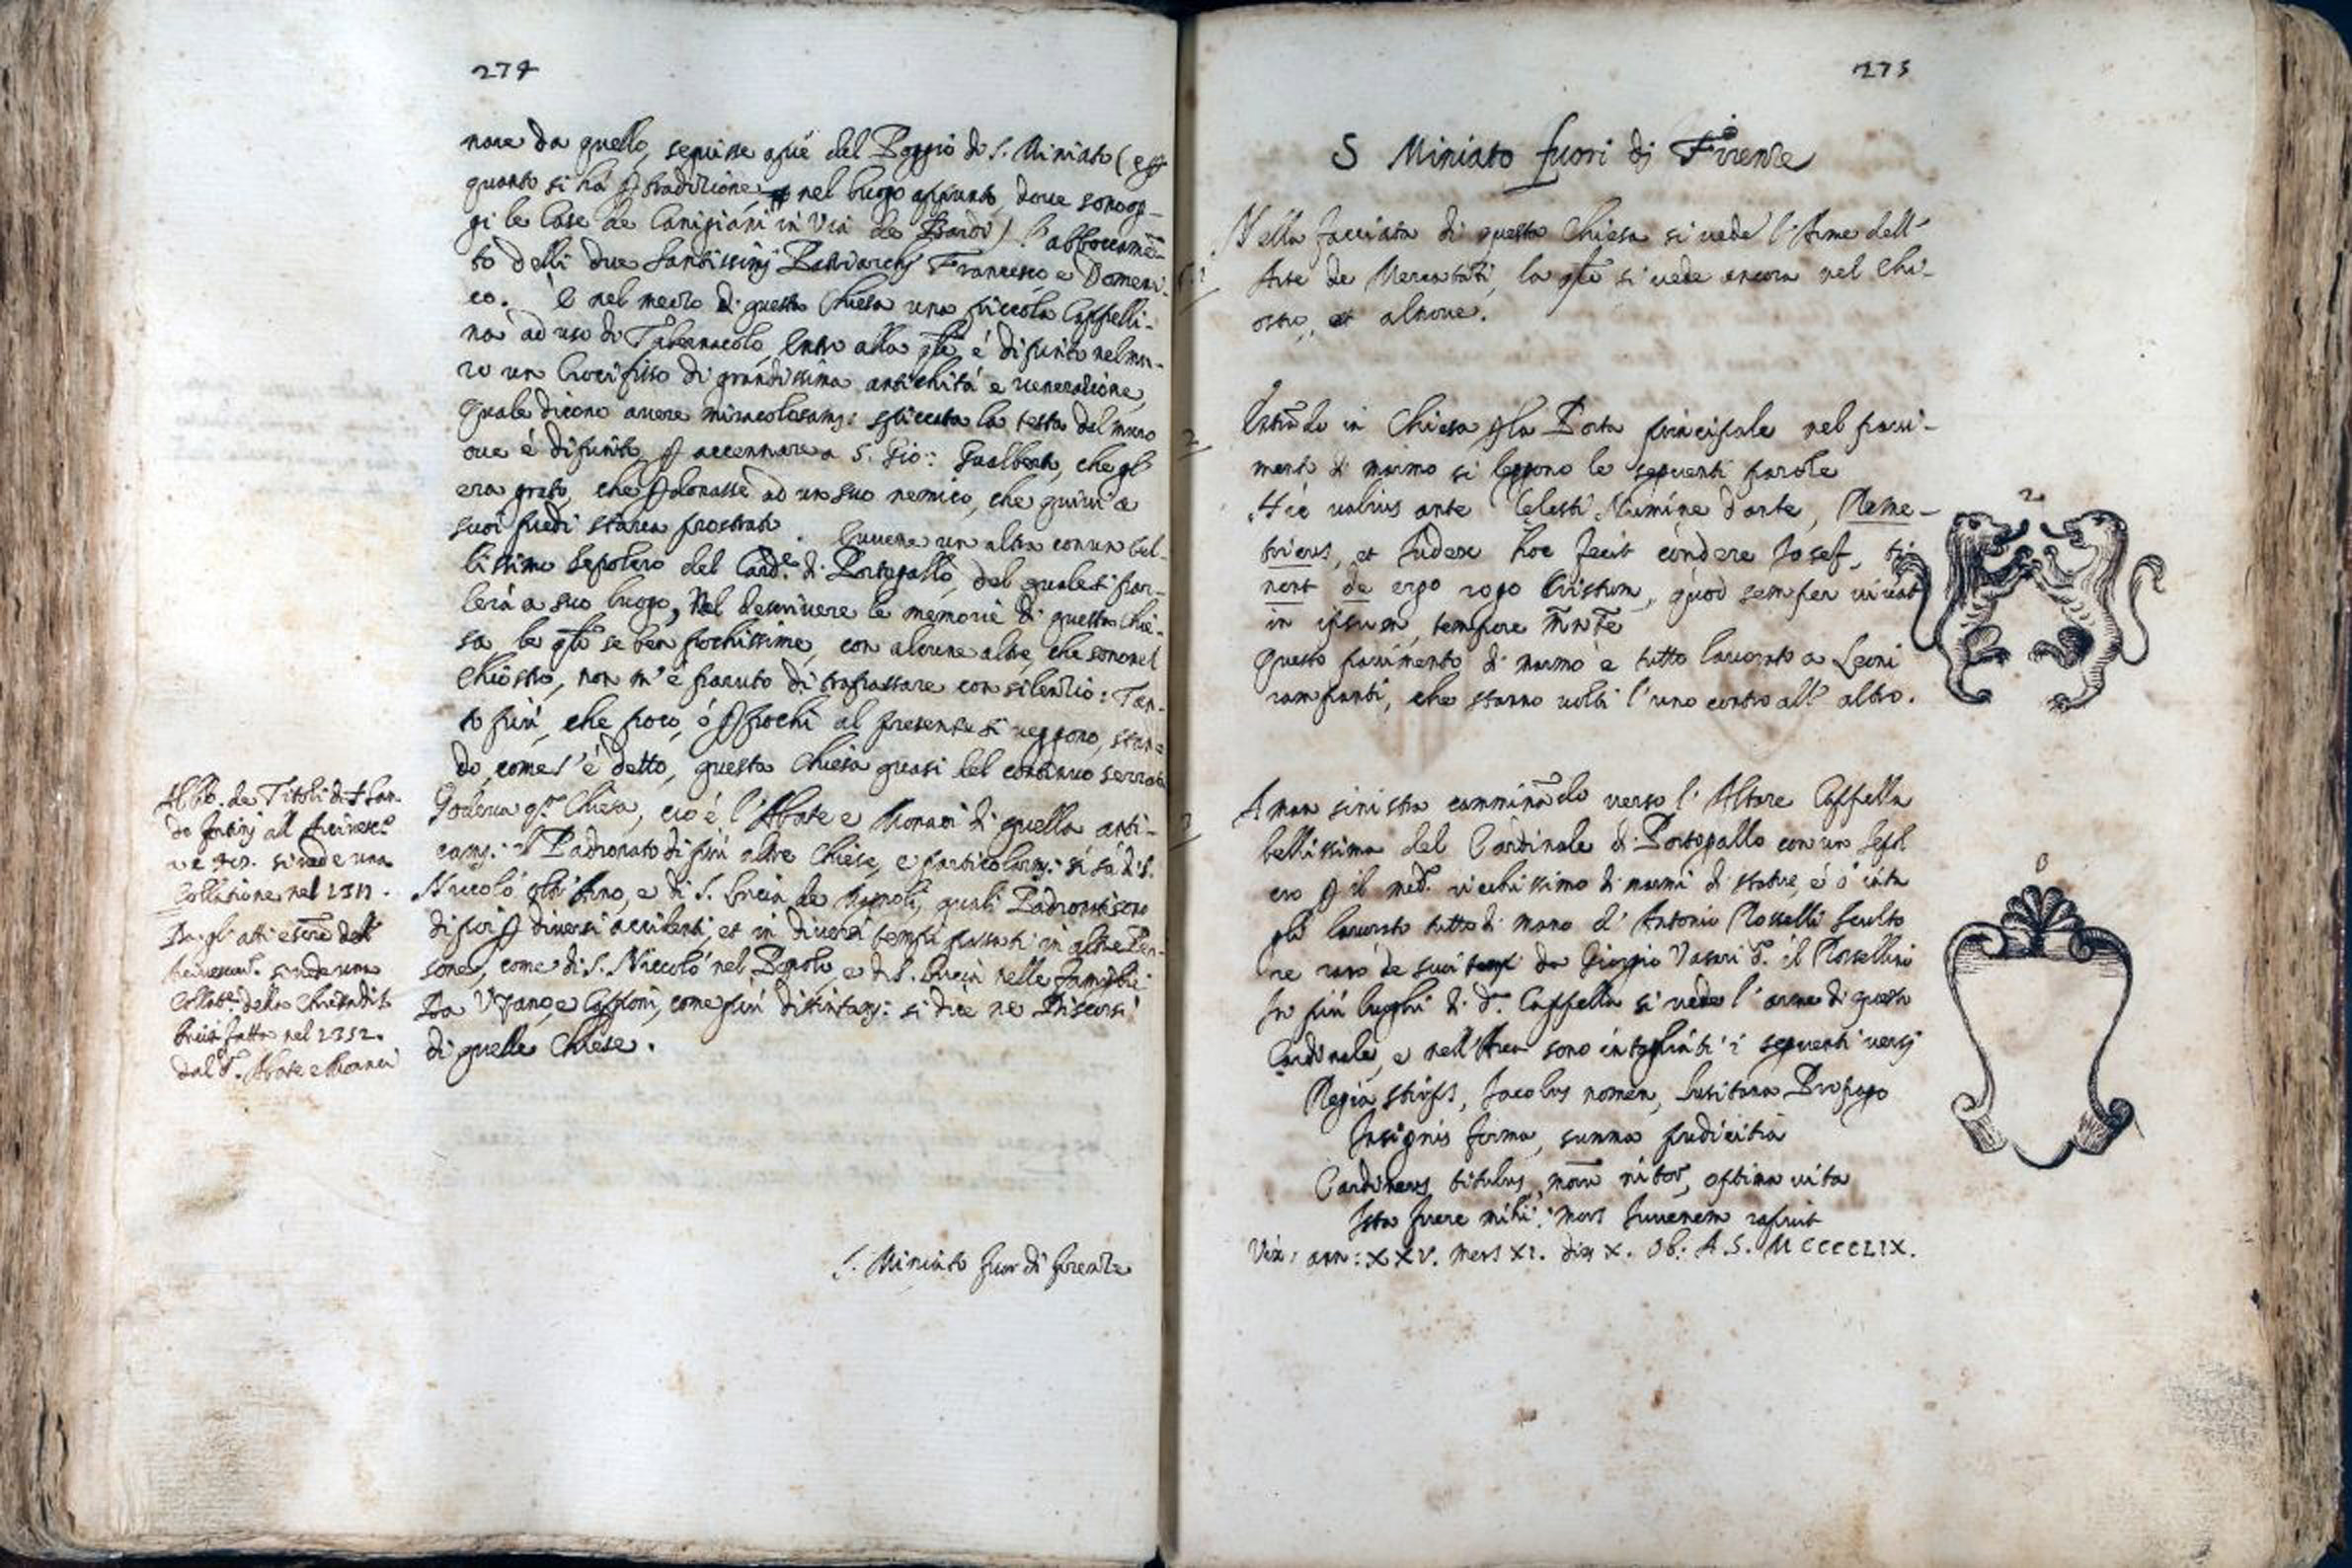 274
nare da quello, seguisse a piè del Poggio di S. Miniato (e p
quanto si ha p tradizione nel luogo appunto, dove sono og-
gi le Case de Canigiani in Via de Bardi) l'abboccamē-
to delli due Santissimi Patriarchi Francesco e Domeni-
co. È nel mezzo di questa Chiesa una piccola Cappelli-
na ad uso di Tabernacolo, entro alla qle è dipinto nel mu-
ro un Crocifisso di grandissima antichità e venerazione,
quale dicono avere miracolosamte: spiccata la testa dal muro
ove è dipinto, p accennare a S. Gio: Gualberto, che gl'
era grato, che pdonasse ad un suo nemico, che quivi a
suoi piedi stava prostrato. Evvene un altra con un bel-
lissimo Sepolcro del Card.e di Portogallo, del quale si par-
lerà a suo luogo, Nel descrivere le memorie di questa Chie-
sa, le qli se ben pochissime, con alcune altre, che sono nel
Chiostro, non m'è paruto di trapassare con silenzio: Tan-
to più, che poco, ó p pochi al presente si veggono, stan-
do, come s'è detto, questa Chiesa quasi del continuo serrata
Godeva qta Chiesa, cioè l'Abate e Monaci di quella anti-
camte: il Padronato di più altre Chiese, e particolarmte: si sà di S.
Niccolò oltr'Arno, e di S. Lucia de Magnoli, quali Padronati sono
di poi p diversi accidenti, et in diversi tempi passati in altre Per-
sone, come di S. Niccolò nel Popolo, e di S. Lucia nelle famiglie
Da Uzzano, e Capponi, come più distintamte: si dice ne Discorsi
di quelle Chiese.
de Titoli di
all
si vede una
Collazione nel
Da gl' atti
si vede una
della Chiesa di S.
Lucia fatta nel 1352.
dal d.o Abate e Monaci
S. Miniato fuor di Firenze
275
S Miniato fuori di Firenze
1
Nella facciata di questa Chiesa si vede l'Arme dell'
Arte de Mercatanti, la qle si vede ancora nel Chi-
ostro, et altrove.
2
Entrādo in Chiesa p la Porta principale nel pavi-
mento di marmo si leggono le seguenti parole
Hic valvis ante Celesti Numine dante, Reme-
tricus, et Judex hoc fecit condere Josef, ti
nent de ergo rogo Cristum, quod semper vivat
in ipsum, tempore m̄n̄t̄e
Questo pavimento di marmo è tutto lavorato a Leoni
rampanti, che stanno volti l'uno contro all' altro.
2
3
A man sinistra camminādo verso l'Altare Cappella
bellissima del Cardinale di Portogallo con un Sepol
cro p il med.o ricchissimo di marmi di statue, e d'inta
gli lavorato tutto di mano d'Antonio Rosselli Sculto
re raro de suoi tempi da Giorgio Vasari d.o il Rossellino
In più luoghi di d.a Cappella si vede l'arme di questo
Cardinale, e nell'Arca sono intagliati i seguenti versi
Regia stirps, Jacobus nomen, Lusitana Propago
Insignis forma, summa pudicitia
Cardineus titulus, morū nitor, optima vita
Ista fuere mihi: mors Juvenem rapuit
Vix: ann: XXV. mens XI. dies X. Ob: A. S. MCCCCLIX.
3